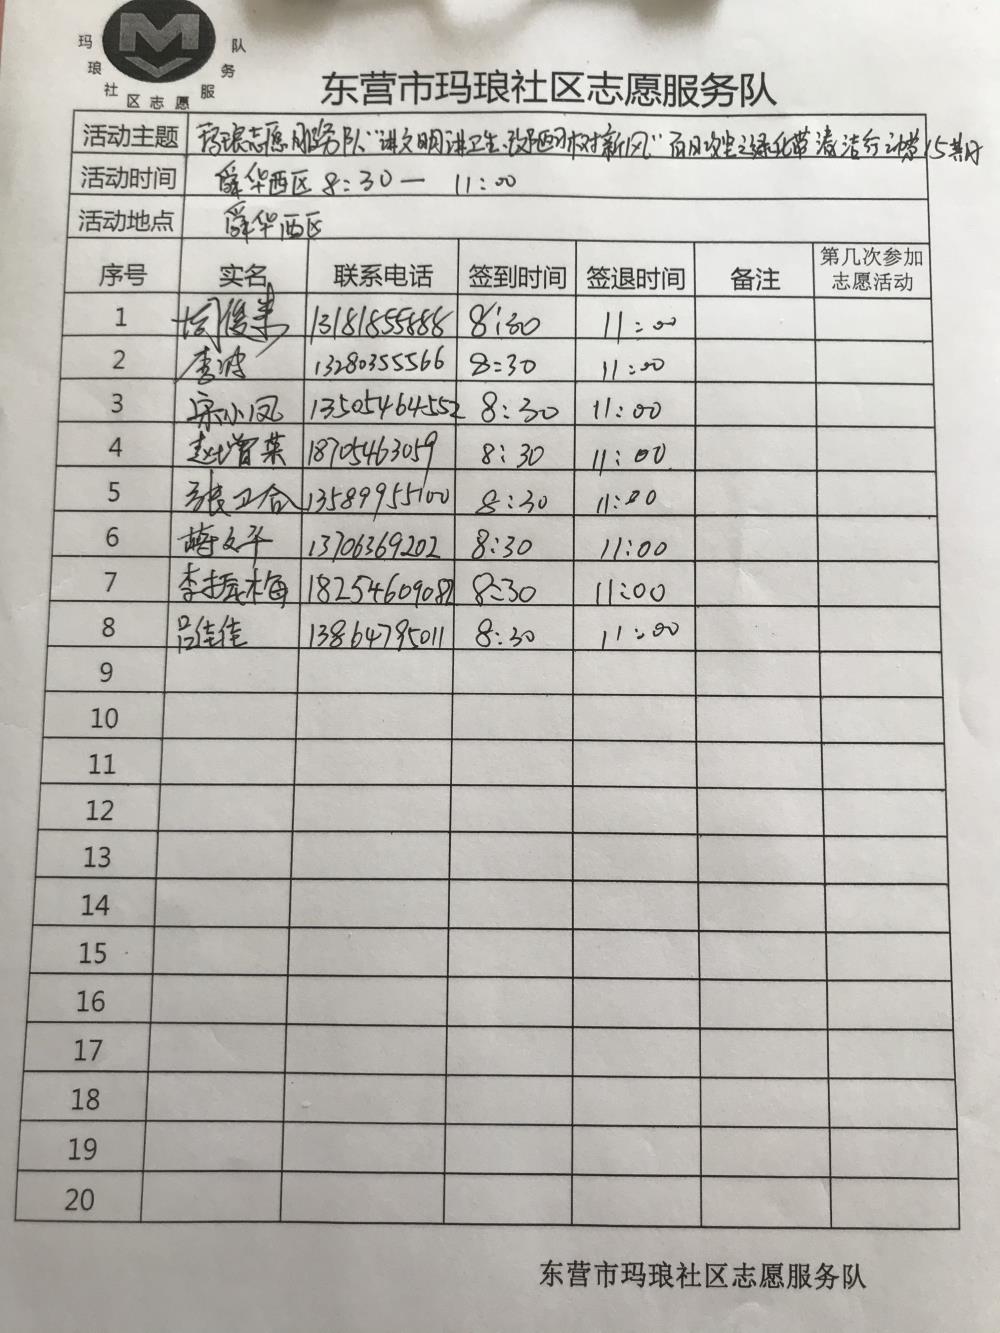 M
玛琅社区志愿服务队
东营市玛琅社区志愿服务队
活动主题 玛琅志愿服务队"讲文明讲卫生、改陋习树新风"百日攻坚之绿化带清洁行动第15期
活动时间 舜华西区 8:30一 11:00
活动地点 舜华西区
序号 实名 联系电话 签到时间 签退时间 备注 第几次参加志愿活动
1 13181855888 8:30 11:00
2 李波 13280355566 8:30 11:00
3 宋小凤 13505464552 8:30 11:00
4 赵增荣 18705463059 8:30 11:00
5 张卫合 13589955100 8:30 11:00
6 蒋文平 13706369202 8:30 11:00
7 李振梅 18254609082 8:30 11:00
8 吕佳佳 13864795011 8:30 11:00
9
10
11
12
13
14
15
16
17
18
19
20
东营市玛琅社区志愿服务队